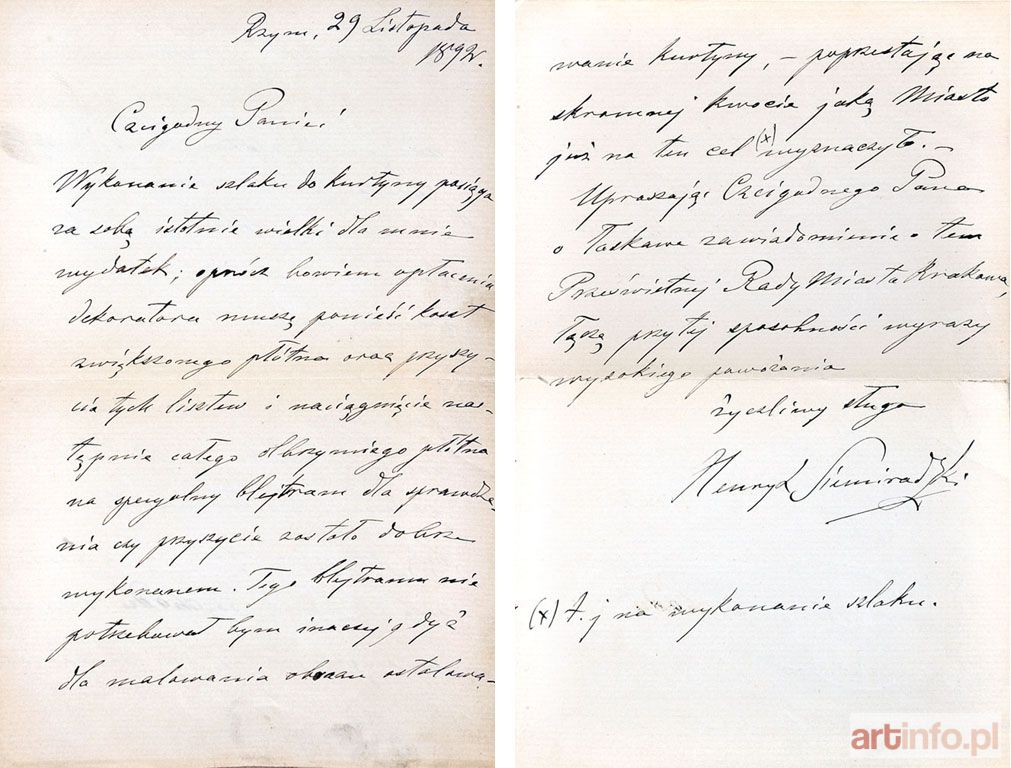 Rzym, 29 Listopada
1892r.
Czcigodny Panie!
Wykonanie szlaku do kurtyny pociąga
za sobą istotnie wielki dla mnie
wydatek; oprócz bowiem opłacenia
dekoratora muszę ponieść koszt
zwiększonego płótna oraz przyszy-
cia tych listew i naciągnięcie nas-
tępnie całego olbrzymiego płótna
na specyalny blejtram dla sprawdze-
nia czy przyszycie zostało dobrze
wykonanem. Tego blejtramu nie
potrzebował bym inaczej, gdyż
dla malowania obrazu
wanie kurtyny, – poprzestając na
skromnej kwocie jaką Miasto
już na ten cel (x) wyznaczyło. –
Upraszając Czcigodnego Pana
o łaskawe zawiadomienie o tem
Prześwietnej Rady Miasta Krakowa,
łączę przy tej sposobności wyrazy
wysokiego poważania
życzliwy sługa
Henryk Siemiradzki
(x) t. j na wykonanie szlaku.
artinfo.pl